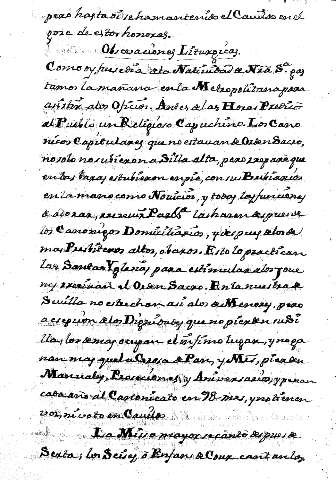 pero hasta oi se ha mantenido el Cavildo en el
goze de estos honores.
Observaciones Liturgicas.
Como oy fuese dia de la Natividad de Ntra. Sª. gas
tamos la mañana en la Metropolitana para
asistir a los Oficios. Antes de las Horas Predicò
al Pueblo un Religioso Capuchino. Los Cano
nicos Capitulares que no estavan de Orden Sacro,
no solo no subieron a Silla alta, pero reparè que
en las baxas estubieron en pie, con sus Breviarios
en la mano como Novicios, y todas las funciones
de adorar, recevir Paz &ª. las hacen despues de
los Canonigos Domiciliarios, y despues de los de
mas Presviteros altos, ò baxos. Esto lo practican
las Santas Yglesias para estimular a los que
no recivieron el Orden Sacro. En la nuestra de
Sevilla no estrechan asi a los de Menores, pero
a esepcion de los Dignidades que no pierden su Si
lla, los demas ocupan el infimo lugar, y no ga
nan mas que la Gresa de Pan, y Mrs, pierden
Manuales, Procesiones, y Aniversarios, y penan
cada año al Cartonicato en 98 mrs, y no tienen
voz, ni voto en Cavildo.
La Misa mayor se cantò despues de
Sexta; los Seises, ò Enfans de Cœur cantan los